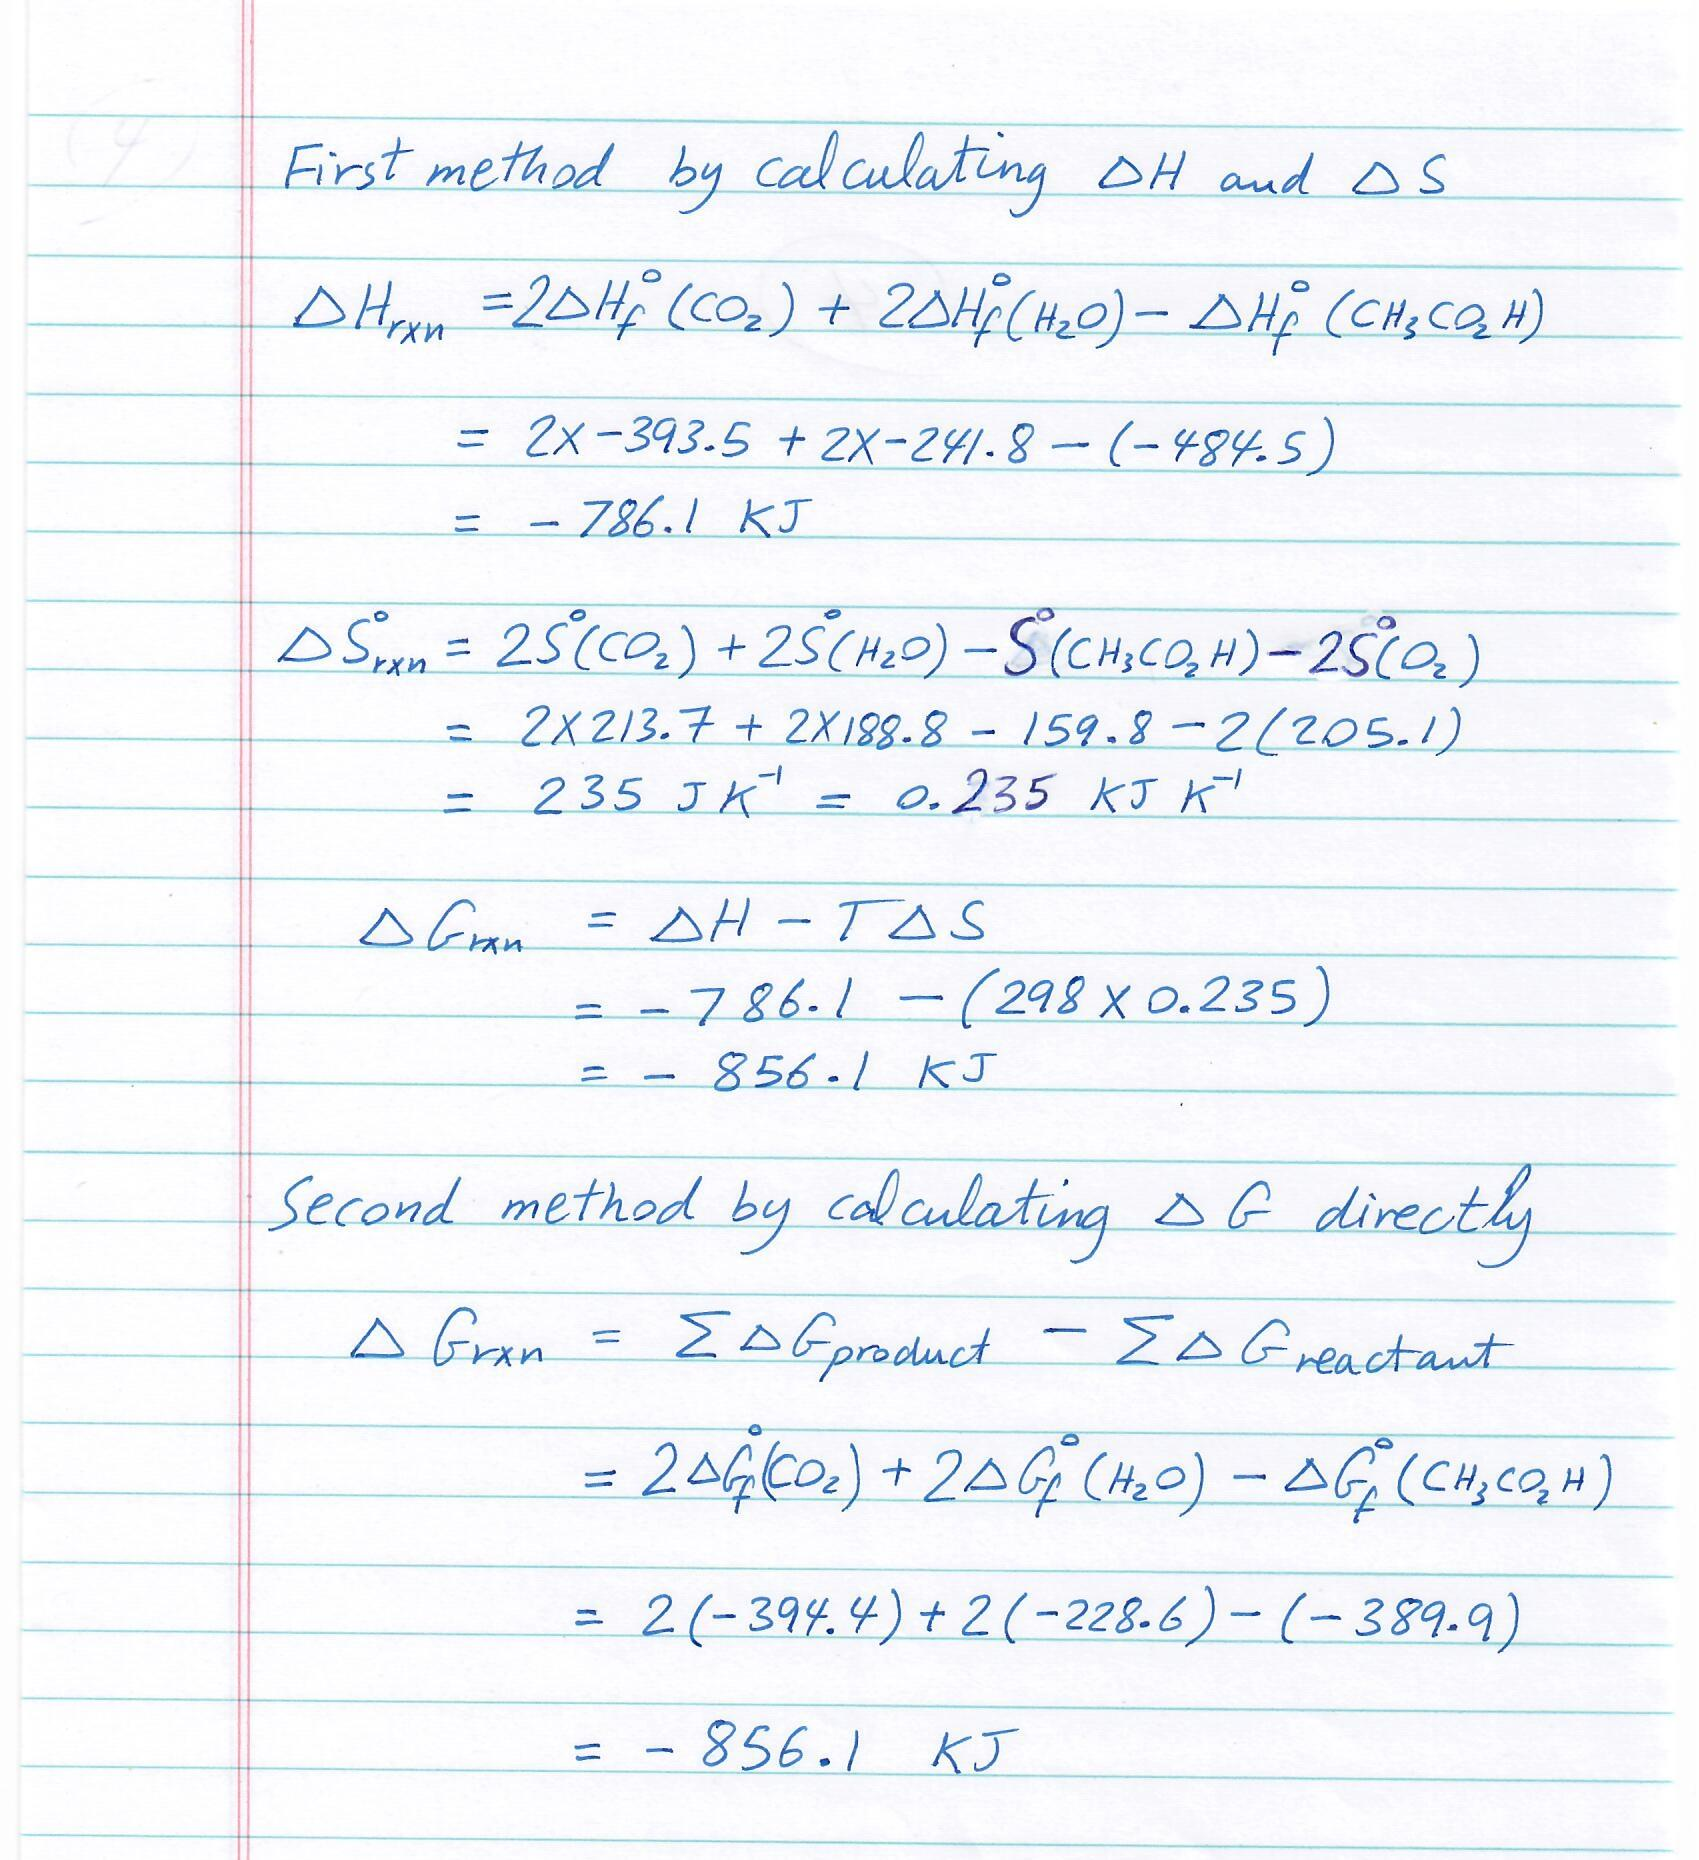 First method by calculating ΔH and ΔS
ΔHrxn = 2ΔHf°(CO₂) + 2ΔHf°(H₂O) − ΔHf°(CH₃CO₂H)
= 2x−393.5 + 2x−241.8 − (−484.5)
= − 786.1 KJ
ΔS°rxn = 2S°(CO₂) + 2S°(H₂O) − S°(CH₃CO₂H) − 2S°(O₂)
= 2x213.7 + 2x188.8 − 159.8 − 2(205.1)
= 235 J K⁻¹ = 0.235 KJ K⁻¹
ΔGrxn = ΔH − TΔS
= − 786.1 − (298 x 0.235)
= − 856.1 KJ
Second method by calculating ΔG directly
ΔGrxn = ΣΔGproduct − ΣΔGreactant
= 2ΔGf°(CO₂) + 2ΔGf°(H₂O) − ΔGf°(CH₃CO₂H)
= 2(−394.4) + 2(−228.6) − (−389.9)
= − 856.1 KJ